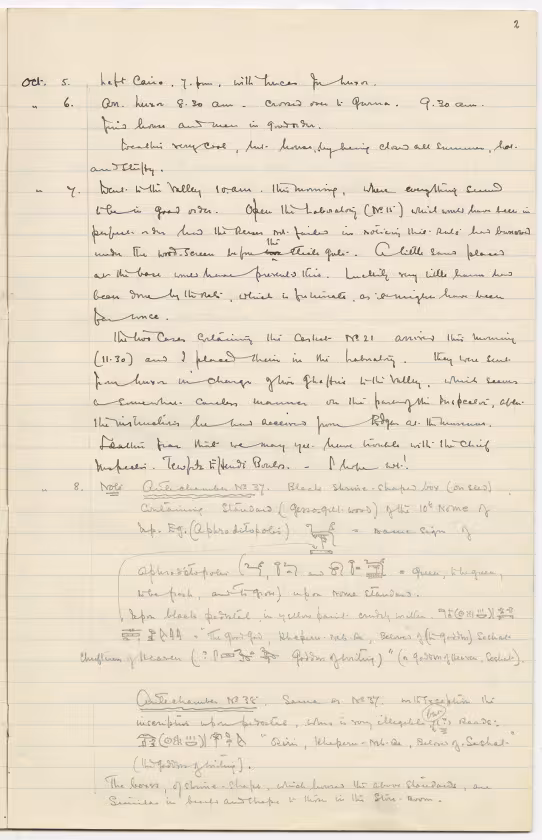 2
Oct. 5. Left Cairo. 7. p.m. with Lucas for Luxor.
" 6. Arr. Luxor 8.30 am. Crossed over to Gurna. 9.30 am.
Find house and men in good order.
Weather very cool, but house, by being closed all Summer, hot
and stuffy.
" 7. Went to the Valley 10 am. this morning, where everything seemed
to be in good order. Open the Laboratory (No 15) which would have been in
perfect order had the Reises not failed in noticing that rats had burrowed
under the wood-screen before the steel gate. A little sand placed
at the base would have prevented this. Luckily very little harm has
been done by the rats, which is fortunate, as it might have been
far worse.
The two Cases containing the Casket No 21 arrived this morning
(11.30) and I placed them in the Laboratory. They were sent
from Luxor in charge of two Ghaffirs to the Valley, which seems
a somewhat careless manner on the part of the Inspector, after
the instructions he had received from Edgar at the museum.
I gather from that we may yet have trouble with the Chief
Inspector. Tewfik Effendi Boulos. - I hope not!
" 8. Note Antechamber No 37. Black Shrine-shaped box (on sled)
Containing Standard (gesso-gilt-wood) of the 10th Nome of
Up. Eg. (Aphroditopolis) = name sign of
Aphroditopolis ( and = Queen, the queen,
and ) upon Nome Standard.
Upon black pedestal, in yellow paint crudely written.
= "The Good God, Kheperu-Neb-Re, Beloved of (the Goddess) Seshat
Chieftain of Heaven ( Goddess of writing)" (a goddess of Heaven, Seshat).
Antechamber No 38. Same as No 37. with exception the
inscription upon pedestal, which is very illegible Reads:
"Osiris, Kheperu-Neb-Re, Beloved of Seshat"
(the Goddess of writing).
The boxes, of shrine-shape, which housed the above Standards, are
Similar in and shape to those in the Store-Room.